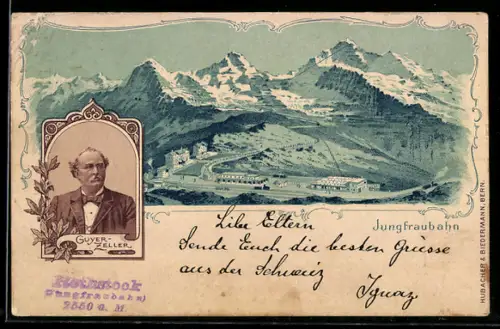 Jungfraubahn
GUYER-
ZELLER
Liebe Eltern
Sende Euch die besten Grüsse
aus der Schweiz
Ignaz
Rothstock
(Jungfraubahn)
2550 ü. M.
HUBACHER & BIEDERMANN, BERN.